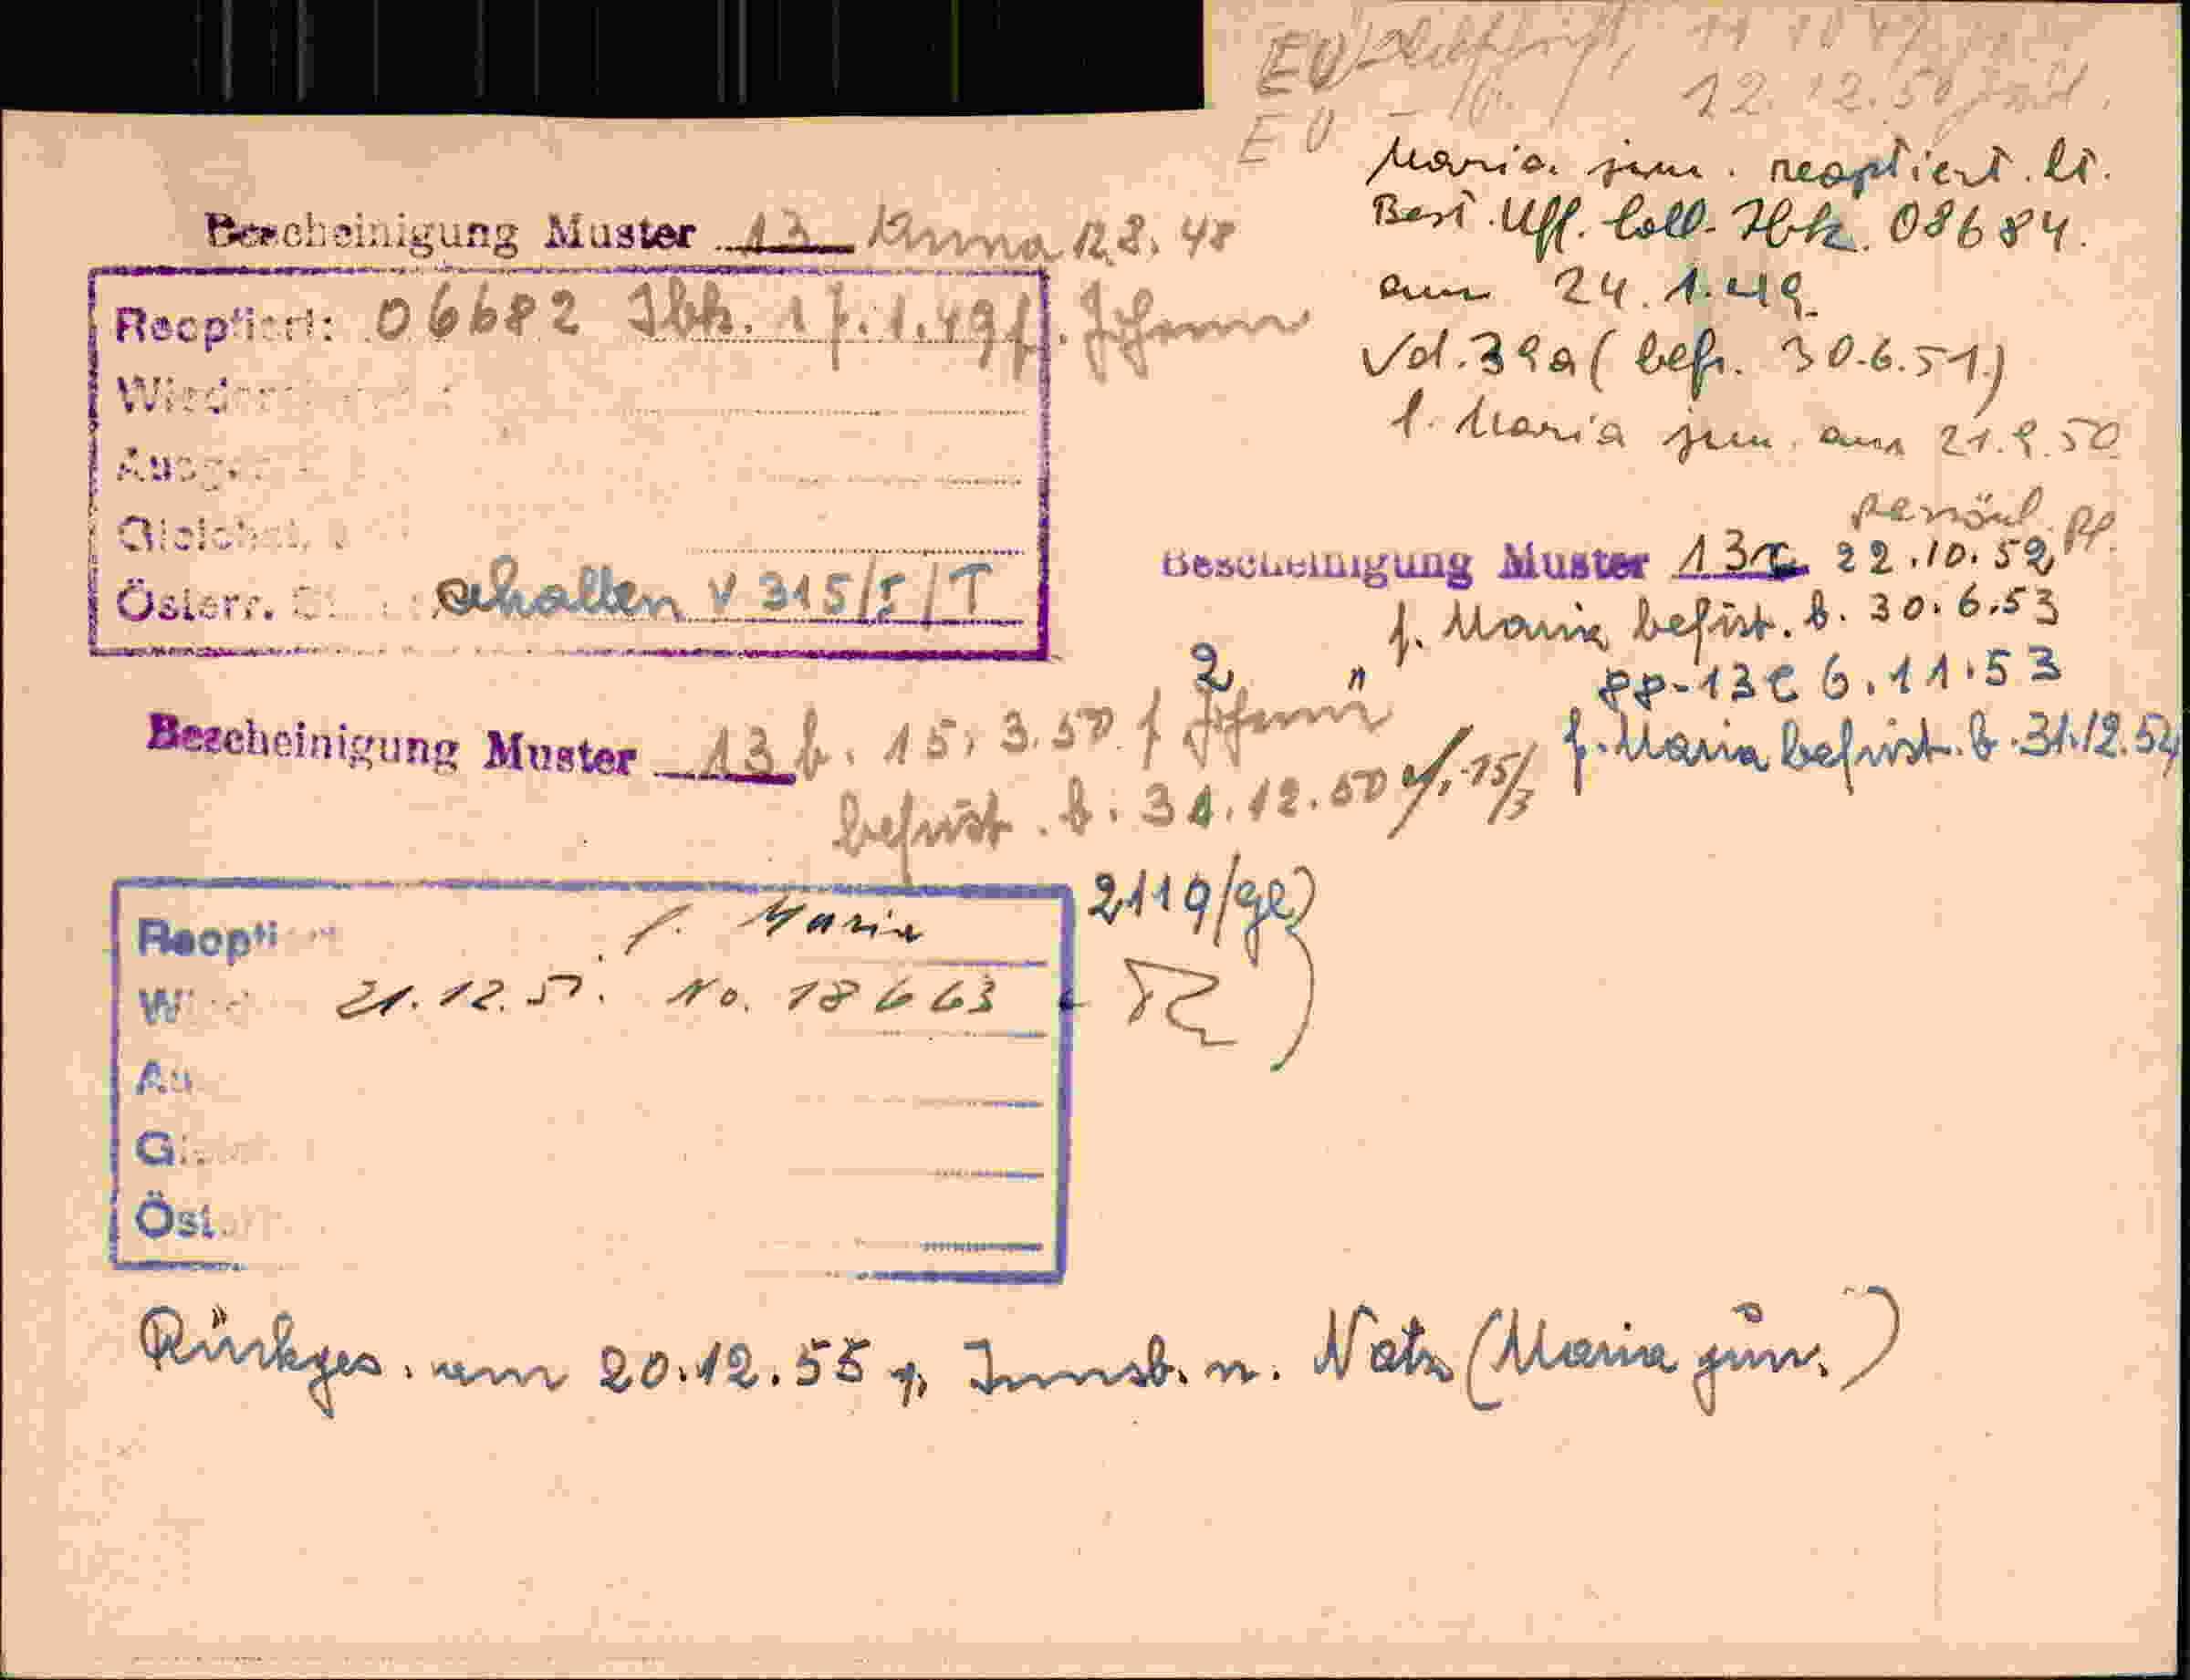 EV
12.12.50
EV
Maria jun. reoptiert. lt.
Best. Uff. Coll. Ibk. 08684.
am 24.1.49.
Vd. 39a (befr. 30.6.51)
f. Maria jun. am 21.9.50
Bescheinigung Muster 13 Anna 12.8.48
Reoptiert: 06682 Ibk. 17.1.49 f. Johann
Österr. erhalten V 315/I/T
persönl. pp.
Bescheinigung Muster 13c 22.10.52
f. Maria, befrist. b. 30.6.53
2 " pp-13c 6.11.53
f. Maria befrist. b. 31.12.54
Bescheinigung Muster 13 b. 15.3.50 f. Johann
befrist. b. 31.12.50 15/3
Reopti f. Maria 2119/ge)
W 21.12.51. No. 18663
Au
G
Öst.
Rückges. am 20.12.55 v. Innsb. n. Natz (Maria jun.)